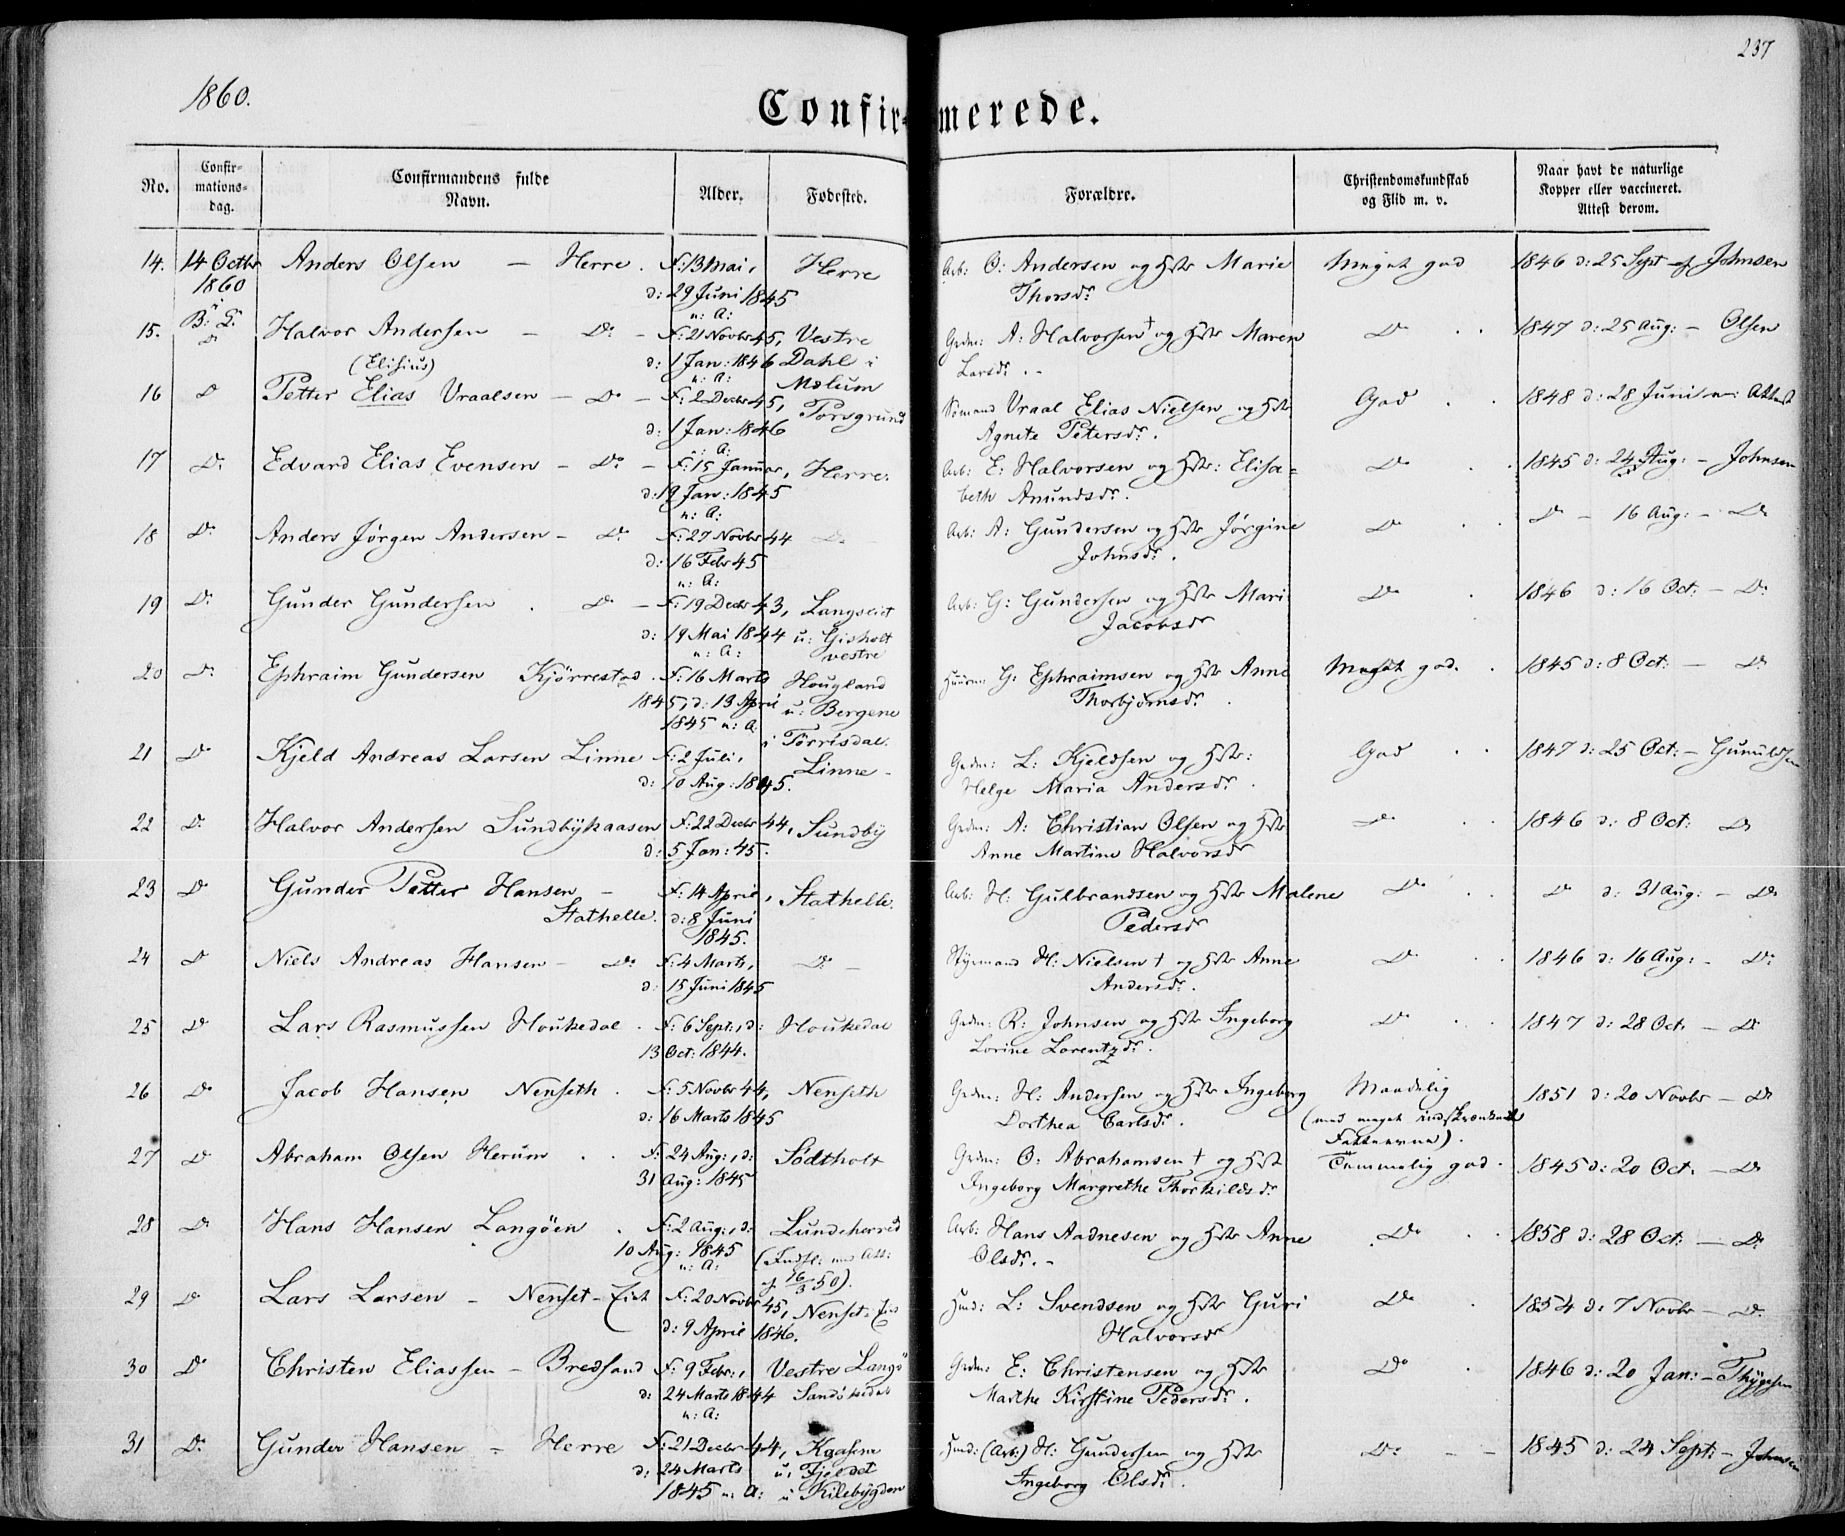 237
1860.
Confirmerede.
No. Confirmations-dag. Confirmandens fulde Navn. Alder. Fødested. Forældre. Christendomskundskab og Flid m. v. Naar havt de naturlige Kopper eller vaccineret. Attest derom.
14. 14 Octbr Anders Olsen — Herre. F: 13 Mai, Herre Arb: O: Andersen og Hstr Marie Meget god 1846 d: 25 Sept af Johnsen
1860 d: 29 Juni 1845 Thorsdr
i B: G. n: A:
15. Do Halvor Andersen — Do — F: 21 Novbr 45, Vestre Grdm: A: Halvorsen † og Hstr Maren Do 1847 d: 25 Aug: — Olsen
(Elisius) d: 1 Jan: 1846 Dahl i Larsdr.
n: A: Mælum
16 Do Petter Elias Vraalsen — Do — F: 2 Decbr 45, Porsgrund Sømand Vraal Elias Nielsen og Hstr God 1848 d: 28 Juni n: Attest
d: 1 Jan: 1846 Agnete Petersdr.
n: A:
17 Do Edvard Elias Evensen — Do — F: 15 Januar, Herre. Arb: E: Halvorsen og Hstr: Elisa= Do 1845 d: 24 Aug: — Johnsen
d: 19 Jan: 1845 beth Amundsdr.
n: A:
18 Do Anders Jørgen Andersen — Do F: 27 Novbr 44 Do Arb: A: Gundersen og Hstr Jørgine Do Do — 16 Aug: — Do
d: 16 Febr 45 Johnsdr.
n: A:
19 Do Gunder Gundersen . Do — F: 19 Decbr 43, Langseiet Arb: G: Gundersen og Hstr Mari Do 1846 d: 16 Oct: — Do
d: 19 Mai 1844 u: Gisholt Jacobsdr
n: A: vestre
20 Do Ephraim Gundersen Kjörrestad. F: 16 Marts Hougland G: Ephraimsen og Hstr Anne Meget god. 1845 d: 8 Oct: — Do
1845, d: 13 April u: Bergene Thorbjørnsdr.
1845 n: A i Törrisdal.
21 Do Kjeld Andreas Larsen Linne F: 2 Juli, Linne Grdm: L: Kjeldsen og Hstr: God 1847 d: 25 Oct: — Gunuldsen
d: 10 Aug: 1845. Helge Maria Andersdr.
22 Do Halvor Andersen Sundbykaasen F: 22 Decbr 44, Sundby Grdm: A: Christian Olsen og Hstr Do 1846 d: 8 Oct: Do
d: 5 Jan: 45. Anne Martine Halvorsdr
23 Do Gunder Petter Hansen — F: 14 April, Stathelle. Arb: H: Gulbrandsen og Hstr Malene Do Do d: 31 Aug: — Do
Stathelle. d: 8 Juni Pedersdr
1845.
24 Do Niels Andreas Hansen — Do F: 4 Marts, Do — Styrmand H: Nielsen † og Hstr Anne Do 1846 d: 16 Aug: — Do
d: 15 Juni 1845 Andersdr.
25 Do Lars Rasmussen Houkedal. F: 6 Sept:, d: Houkedal Grdm: R: Johnsen og Hstr Ingeborg Do 1847 d: 28 Oct. — Do
13 Oct: 1844. Lorine Lorentzdr.
26 Do Jacob Hansen Nenseth. F: 5 Novbr 44, Nenseth Grdm: H: Andersen og Hstr Ingeborg Maadelig 1851 d: 20 Novbr — Do
d: 16 Marts 1845 Dorthea Carlsdr. (med meget indskrænkede
Fatteevne).
27 Do Abraham Olsen Herum . . F: 24 Aug:, d: Södtholt Grdm: O: Abrahamsen † og Hstr Temmelig god. 1845 d: 20 Oct. — Do
31 Aug: 1845 Ingeborg Margrethe Thorkildsdr
28 Do Hans Hansen Langöen . F: 2 Aug:, d: Lundeherred Arb: Hans Aadnesen og Hstr Anne Do 1858 d: 28 Oct: — Do
10 Aug: 1845 (Indfl: med Att: Olsdr. —
n: A: af 16/3 50).
29 Do Lars Larsen — Nenset-Eiet F: 20 Novbr 45, Nenset-Eiet Husm: L: Svendsen og Hstr Guri Do 1854 d: 7 Novbr — Do
d: 9 April 1846. Halvorsdr
30 Do Christen Eliassen — Bredsand F: 9 Febr:, Vestre Langö Grdm: E: Christensen og Hstr Do 1846 d: 20 Jan: — Thygesen
d: 24 Marts 1844 Sandökedal Marthe Kirstine Pedersdr.
n: A:
31 Do Gunder Hansen — Herre F: 21 Decbr 44, Kaasene Husm: (Arb:) H: Gundersen og Hstr Do — 1845 d: 24 Sept: — Johnsen
d: 24 Marts u: Fjeldet Ingeborg Olsdr.
1845 n: A: i Kilebygden